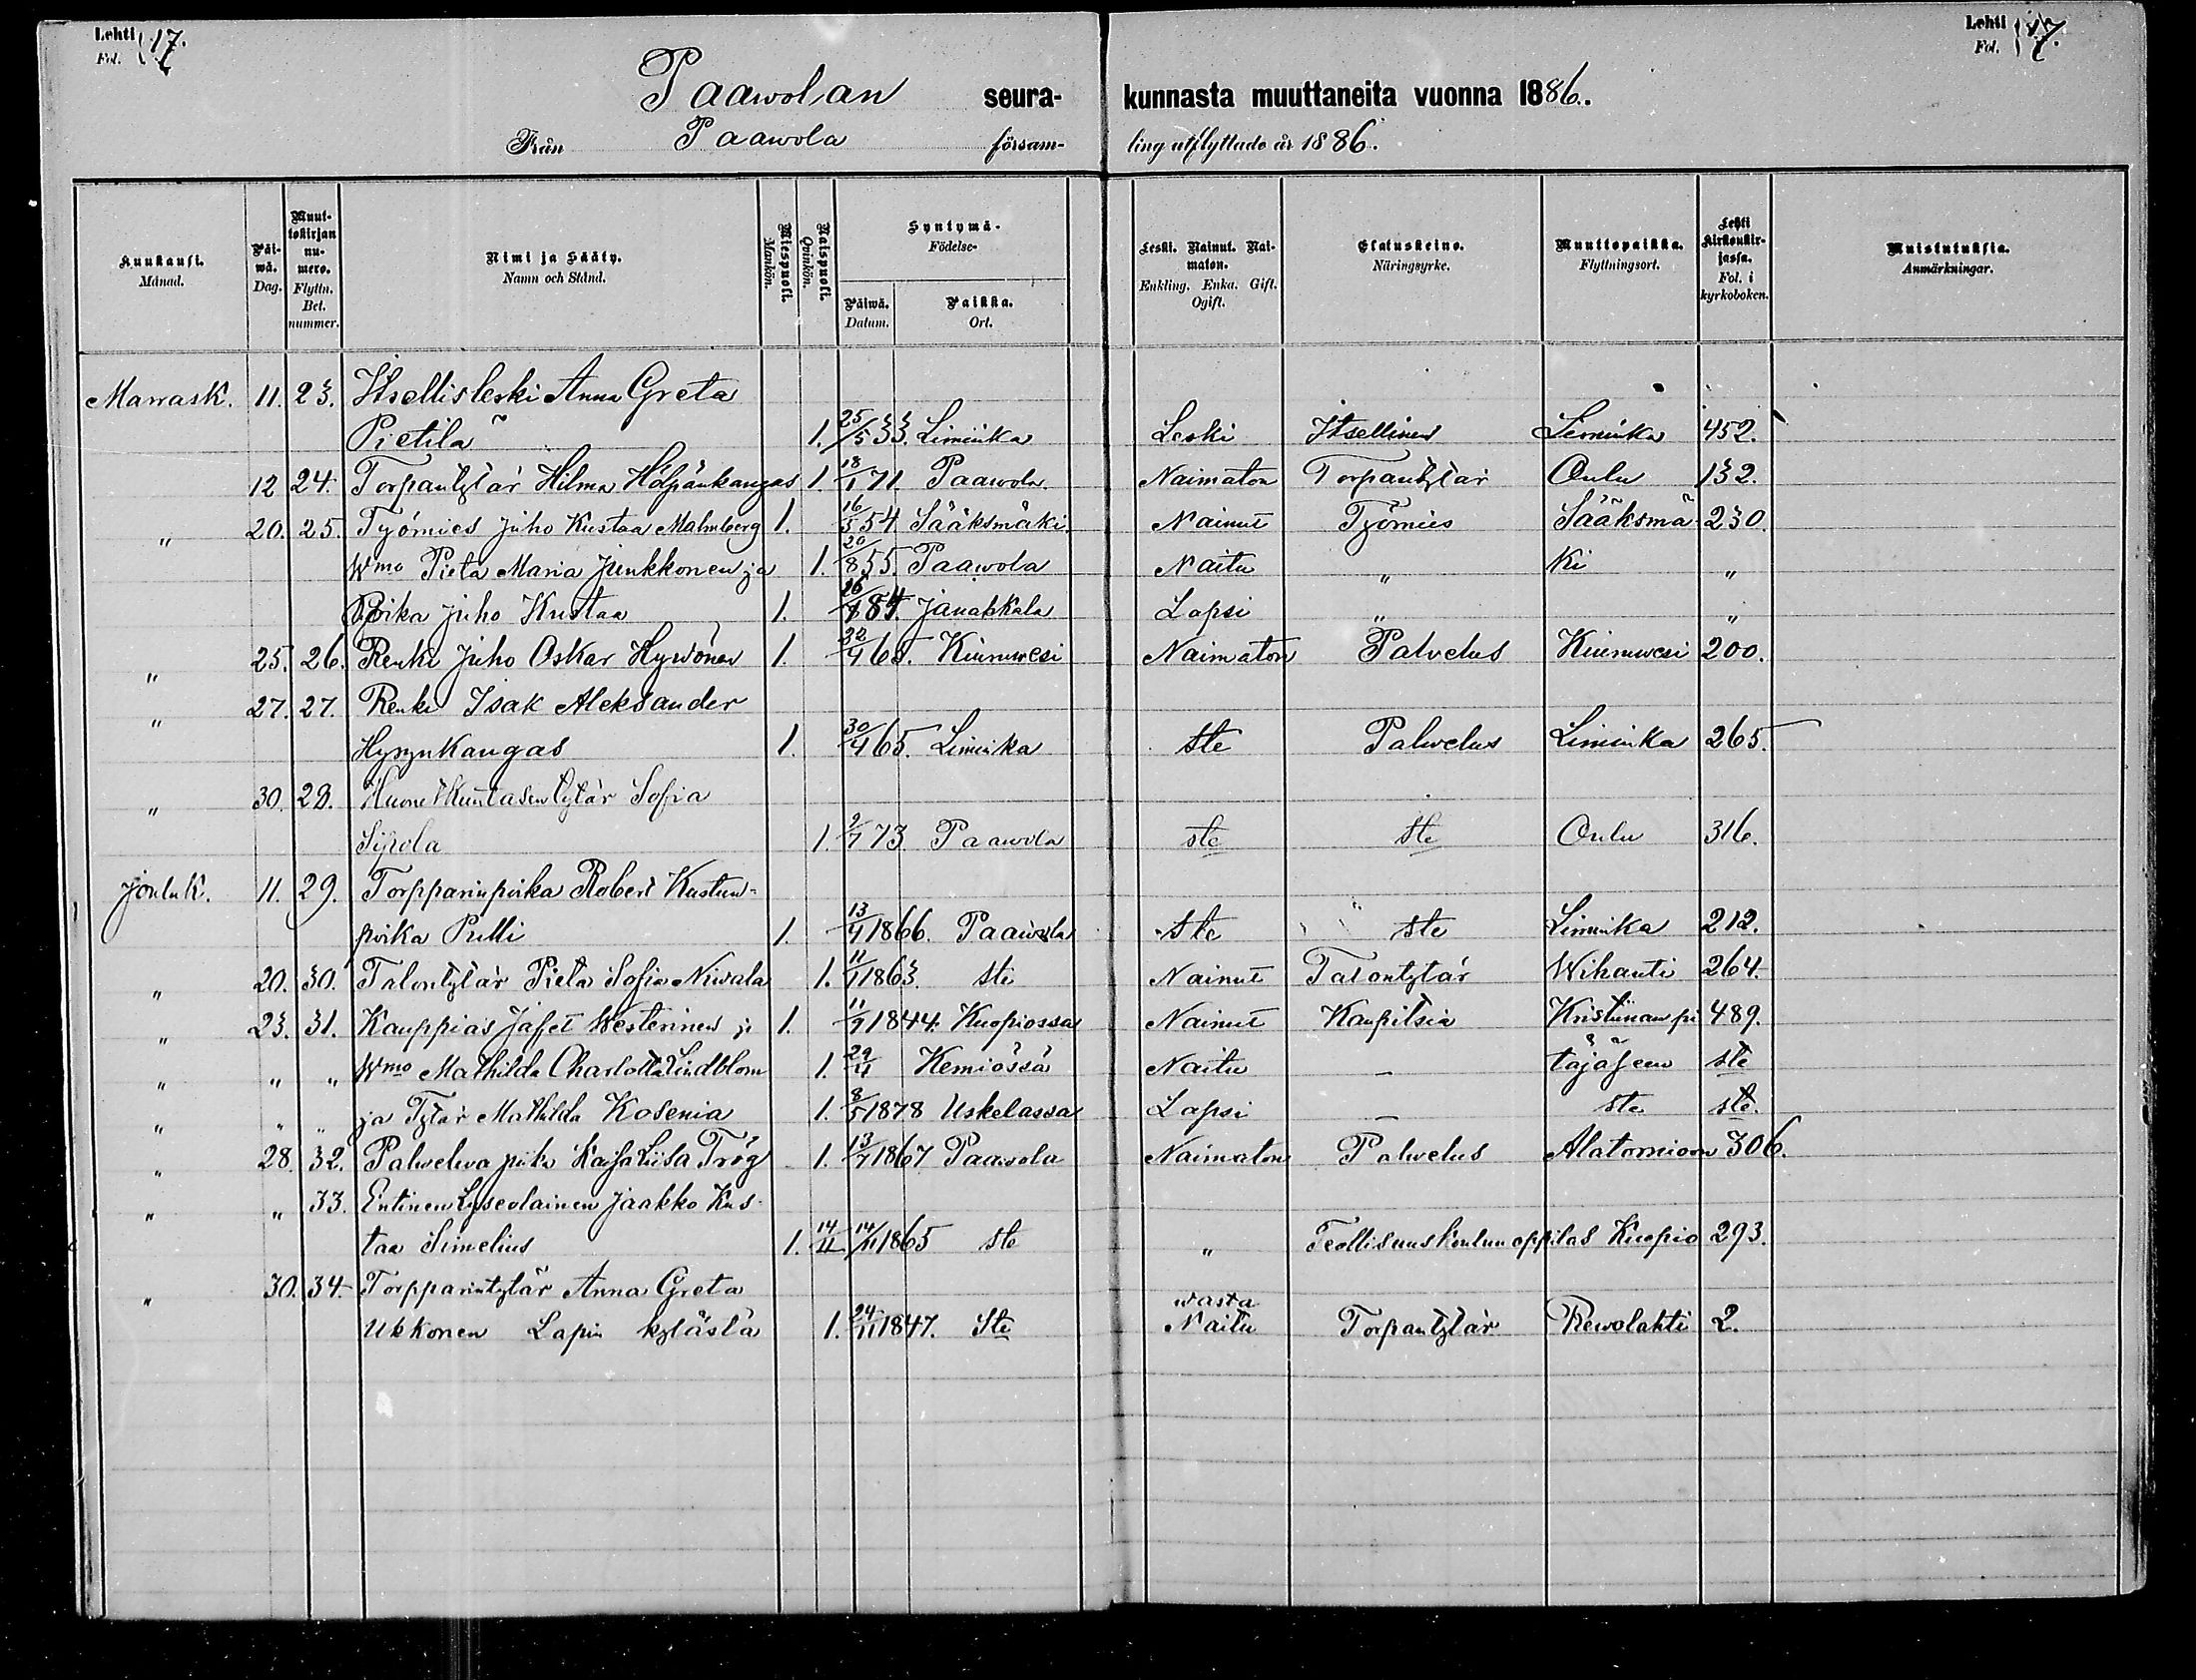 Lehti 17.
Fol.
Lehti 17.
Fol.
Paawolan seura- kunnasta muuttaneita vuonna 1886.
Från Paawola försam- ling utflyttade år 1886.
Kuukausi. Månad.
Päi-wä. Dag.
Muut-tokirjan nu-mero. Flyttn. Bet. nummer.
Nimi ja Sääty. Namn och Stånd.
Miespuoli. Mankön.
Naispuoli. Qvinkön.
Syntymä- Födelse-
Päiwä. Datum.
Paikka. Ort.
Leski. Nainut. Nai-maton. Enkling. Enka. Gift. Ogift.
Elatuskeino. Näringsyrke.
Muuttopaikka. Flyttningsort.
Lehti Kirkonkir-jassa. Fol. i kyrkoboken.
Muistutuksia. Anmärkningar.
Marrask. 11. 23. Itsellisleski Anna Greta
Pietilä 1. 25/5 33. Liminka Leski Itsellinen Liminka 452.
12 24. Torpantytär Hilma Hölpänkangas 1. 18/1 71. Paawola. Naimaton Torpantytär Oulu 132.
" 20. 25. Työmies Juho Kustaa Malmberg 1. 16/5 54. Sääksmäki. Nainut Työmies Sääksmä 230.
Wmo Pieta Maria Junkkonen ja 1. 20/8 55. Paawola Naitu " ki "
Poika Juho Kustaa 1. 26/8 84. Janakkala Lapsi " "
" 25. 26. Renki Juho Oskar Hywönen 1. 22/4 65. Kiuruwesi Naimaton Palvelus Kiuruwesi 200.
" 27. 27. Renki Isak Aleksander
Hyrynkangas 1. 30/4 65. Liminka ste Palwelus Liminka 265.
" 30. 28. tytär Sofia
Sipola 1. 2/7 73 Paawola ste ste Oulu 316.
Jouluk. 11. 29. Torpparinpoika Robert Kustun-
poika Pulli 1. 13/4 1866. Paawola ste ste Liminka 212.
" 20. 30. Talontytär Pieta Sofia Niwala 1. 11/1 1863. ste Nainut Talontytär Wihanti 264.
" 23. 31. Kauppias Jafet Westerinen ja 1. 11/9 1844. Kuopiossa Nainut Kaupitsia Kristiinan pi 489.
" " " Wmo Mathilda Charlotta Lindblom 1. 29/11 Kemiössä Naitu – täjäseen ste
" " " ja Tytär Mathilda Kosenia 1. 8/5 1878 Uskelassa Lapsi – ste ste.
" 28. 32. Palwelwa piika Kaisa Liisa Trög 1. 13/7 1867 Paawola Naimaton Palwelus Alatornioon 306.
" " 33. Entinen Lyseolainen Jaakko Kus-
taa Simelius 1. 14/II 14/11 1865 ste " Teollisuuskoulun oppilas Kuopio 293.
" 30. 34. Torpparintytär Anna Greta
Ukkonen Lapin kylästä 1. 24/11 1847. ste wasta Naitu Torpantytär Rewolahti 2.